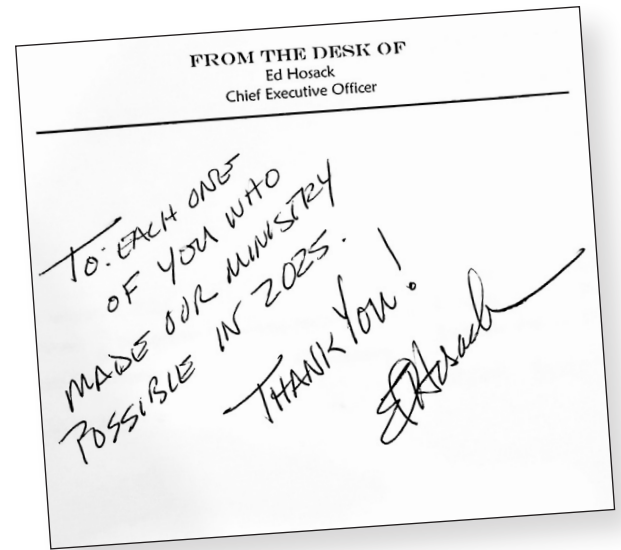 FROM THE DESK OF
Ed Hosack
Chief Executive Officer
TO: EACH ONE
OF YOU WHO
MADE OUR MINISTRY
POSSIBLE IN 2025.
THANK YOU!
EHosack